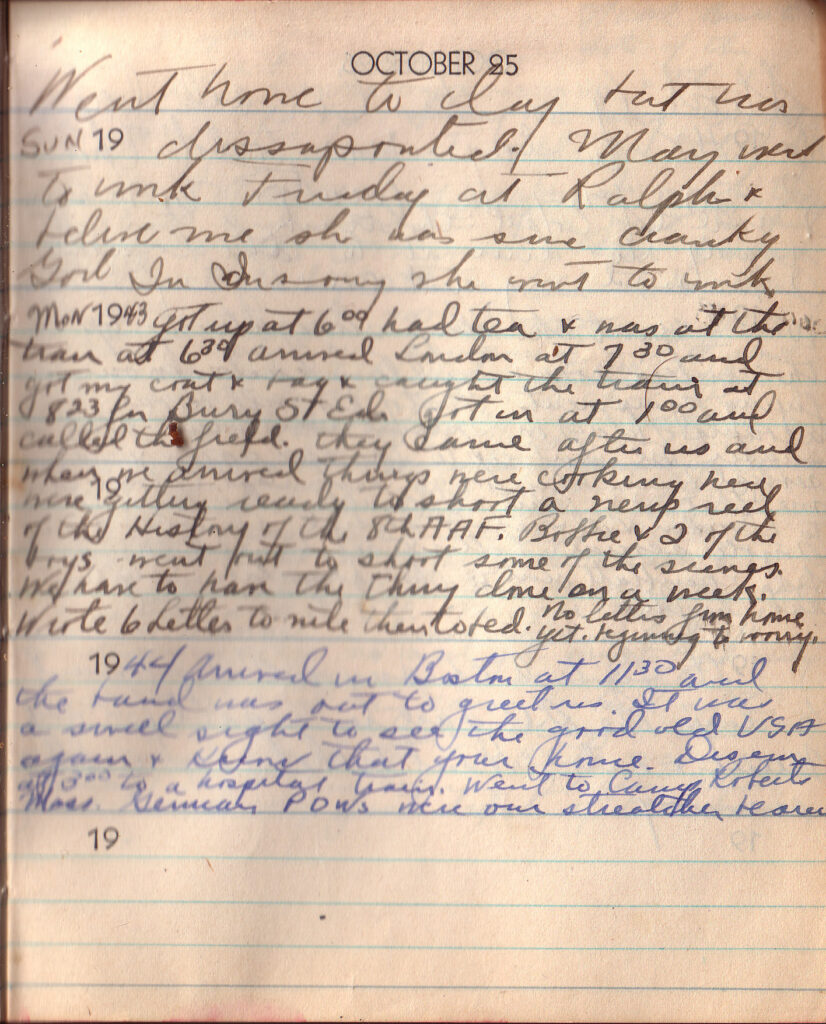 OCTOBER 25
Went home to day but was
SUN 19 dissapointed. May went
to work Friday at Ralph &
beleive me she was sure cranky
God Im so sorry she went to work
MON 1943 got up at 6 00 had tea & was at the
train at 6 30 arrived London at 7 30 and
got my coat & bag & caught the train at
8 23 for Bury St Ed. got in at 1 00 and
called the field. they came after us and
when we arrived things were cooking here
19 were getting ready to shoot a news reel
of the History of the 8th AAF. & 2 of the
boys went out to shoot some of the scenes.
We have to have the thing done in a week.
Wrote 6 letters to nite then to bed. no letters from home
yet. beginning to worry.
1944 Arrived in Boston at 11 30 and
the band was out to greet us. It was
a swell sight to see the good old USA
again & know that your home.
at 3 00 to a hospital train. Went to Camp
Mass. German POWs were our streatcher
19